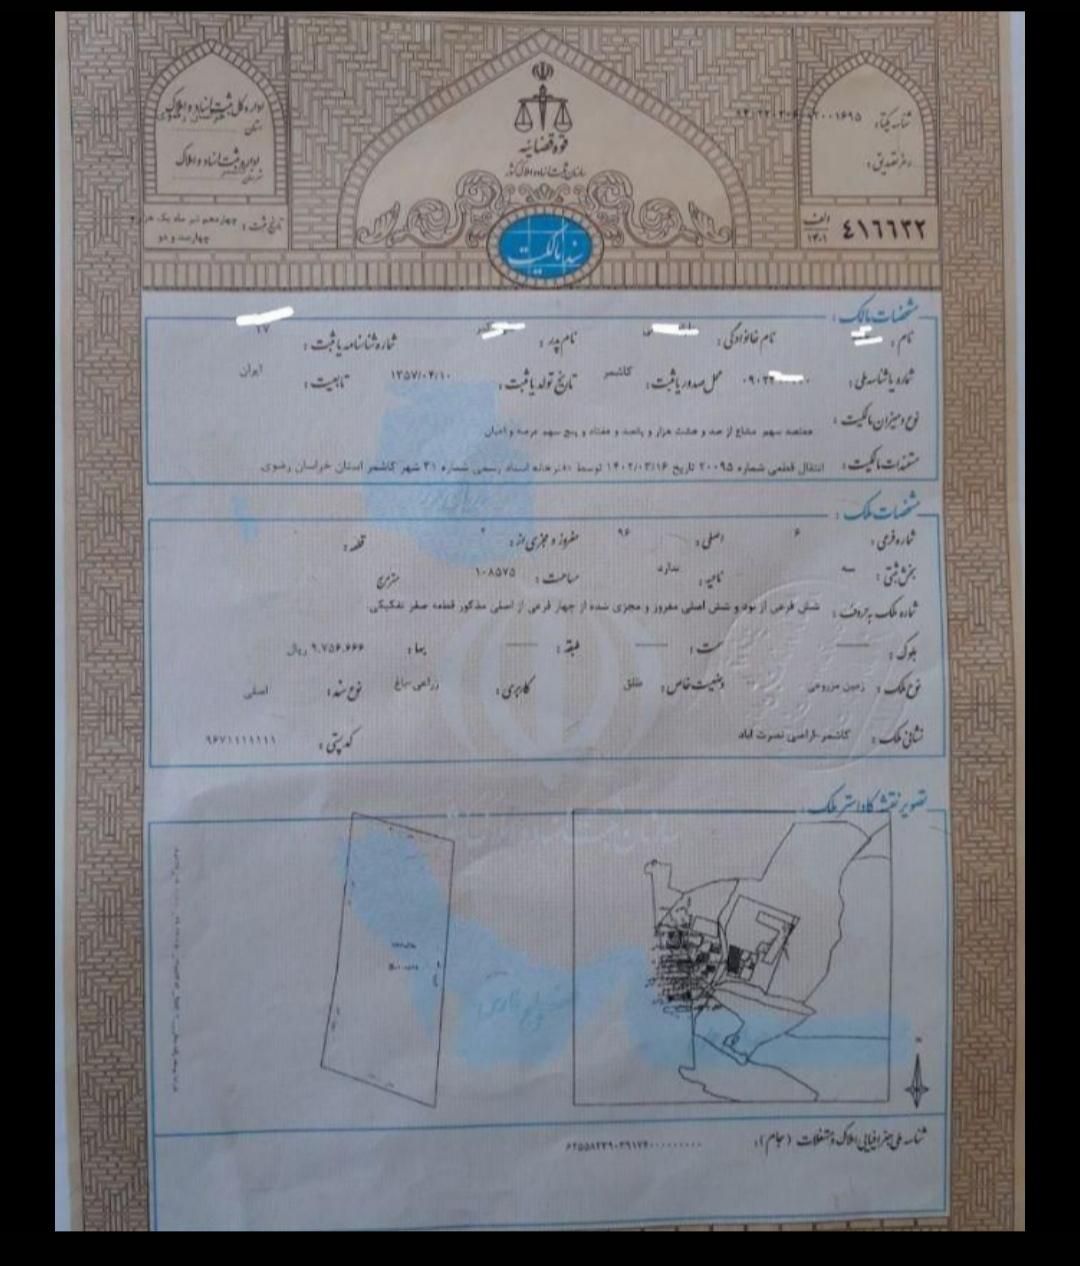 اداره کل ثبت اسناد و املاک
استان
اداره ثبت اسناد و املاک
شهرستان
تاریخ ثبت : چهاردهم تیر ماه یک هزار و
چهارصد و دو
قوه قضائیه
سازمان ثبت اسناد و املاک کشور
سند مالکیت
شناسه یکتا:
رمز تصدیق:
۴۱۶۶۳۲ الف ۱۴۰۱
مشخصات مالک :
نام : نام خانوادگی : نام پدر : شماره شناسنامه یا ثبت : ۱۷
شماره یا شناسه ملی : محل صدور یا ثبت : کاشمر تاریخ تولد یا ثبت : ۱۳۵۷/۰۴/۱۰ تابعیت : ایران
نوع و میزان مالکیت : هفتصد سهم مشاع از صد و هشت هزار و پانصد و هفتاد و پنج سهم عرصه و اعیان
مستندات مالکیت : انتقال قطعی شماره ۲۰۰۹۵ تاریخ ۱۴۰۲/۰۳/۱۶ توسط دفترخانه اسناد رسمی شماره ۳۱ شهر کاشمر استان خراسان رضوی.
مشخصات ملک :
شماره فرعی : ۶ اصلی : ۹۶ مفروز و مجزی از : ۴ قطعه :
بخش ثبتی : سه ناحیه : ندارد مساحت : ۱۰۸۵۷۵ مترمربع
شماره ملک به حروف : شش فرعی از نود و شش اصلی مفروز و مجزی شده از چهار فرعی از اصلی مذکور قطعه صفر تفکیکی.
بلوک : سمت : طبقه : بها : ۹,۷۵۶,۶۶۶ ریال
نوع ملک : زمین مزروعی وضعیت خاص : طلق کاربری : زراعی-باغ نوع سند : اصلی
نشانی ملک : کاشمر-اراضی نصرت آباد کد پستی : ۹۶۷۱۱۱۱۱۱۱
تصویر نقشه کاداستر ملک :
خلیج فارس
شناسه ملی جغرافیایی املاک و مستغلات (جام) :